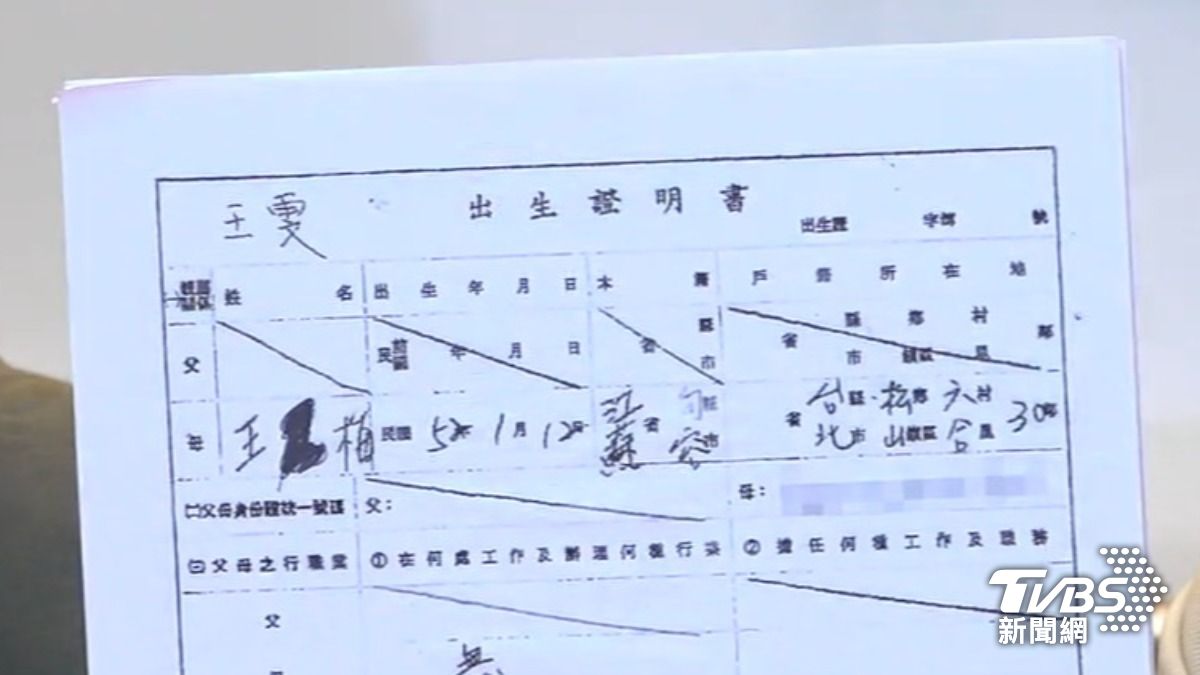 王雯 出生證明書
出生證 字第 號
姓名 出生年月日 本籍 戶籍所在地
父 民前國 年 月 日 省 縣市 省 縣市 鄉鎮區 村里 鄰
母 王 梅 民國 52年 1月 12日 江蘇省 句容縣市 省 台北縣市 松山鄉鎮區 六合村里 30鄰
㈠父母身份證統一號碼 父： 母：
㈡父母之行職業 ①在何處工作及辦理何種行業 ②擔任何種工作及職務
父
無
TVBS
新聞網